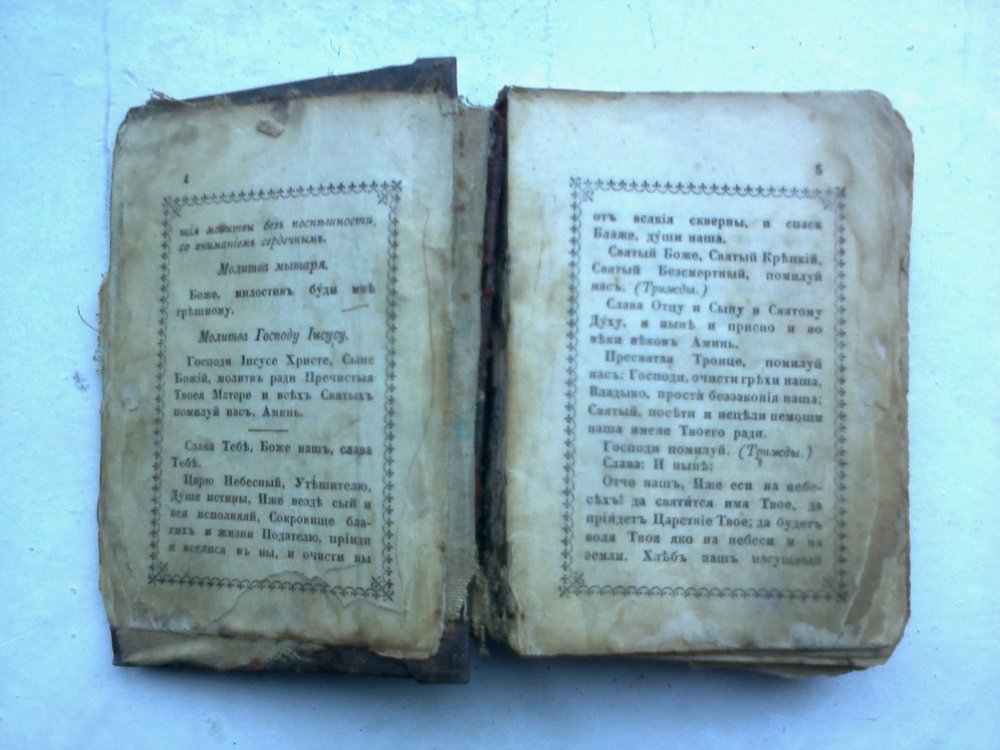 4
щія молитвы безъ поспѣшности,
со вниманіемъ сердечнымъ.
Молитва мытаря.
Боже, милостивъ бу́ди мнѣ
грѣшному.
Молитва Господу Іисусу.
Господи Іисусе Христе, Сыне
Божій, молитвъ ради Пречистыя
Твоея Матере и всѣхъ Святыхъ
помилуй насъ. Аминь.
Слава Тебѣ, Боже нашъ, слава
Тебѣ.
Царю Небесный, Утѣшителю,
Ду́ше истины, Иже вездѣ сый и
вся исполняяй, Сокровище бла-
гихъ и жизни Подателю, пріиди
и вселися въ ны, и очисти ны
5
отъ всякія скверны, и спаси
Блаже, ду́ши наша.
Святый Боже, Святый Крѣпкій,
Святый Безсмертный, помилуй
насъ. (Трижды.)
Слава Отцу и Сыну и Святому
Ду́ху, и нынѣ и присно и во
вѣки вѣковъ Аминь.
Пресвятая Троице, помилуй
насъ: Господи, очисти грѣхи наша,
Владыко, прости́ беззаконія наша;
Святый, посѣти и исцѣли немощи
наша имене Твоего ради.
Господи помилуй. (Трижды.)
Слава: И нынѣ:
Отче нашъ, Иже еси на небе-
сѣхъ! да святи́тся имя Твое, да
прі́идетъ Царствіе Твое; да будетъ
воля Твоя яко на небеси и на
земли. Хлѣбъ нашъ насущный